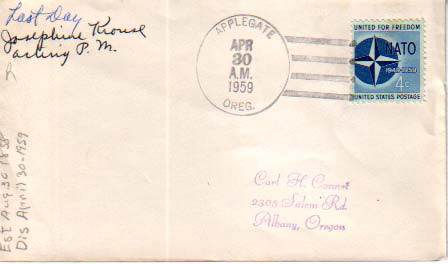 Last Day
Josephine Krouse
Acting P. M.
APPLEGATE
APR
30
A.M.
1959
OREG.
UNITED FOR FREEDOM
NATO
1949-1959
4¢
UNITED STATES POSTAGE
Carl H. Connet
2305 Salem Rd.
Albany, Oregon
Est Aug 30 1858
Dis April 30-1959